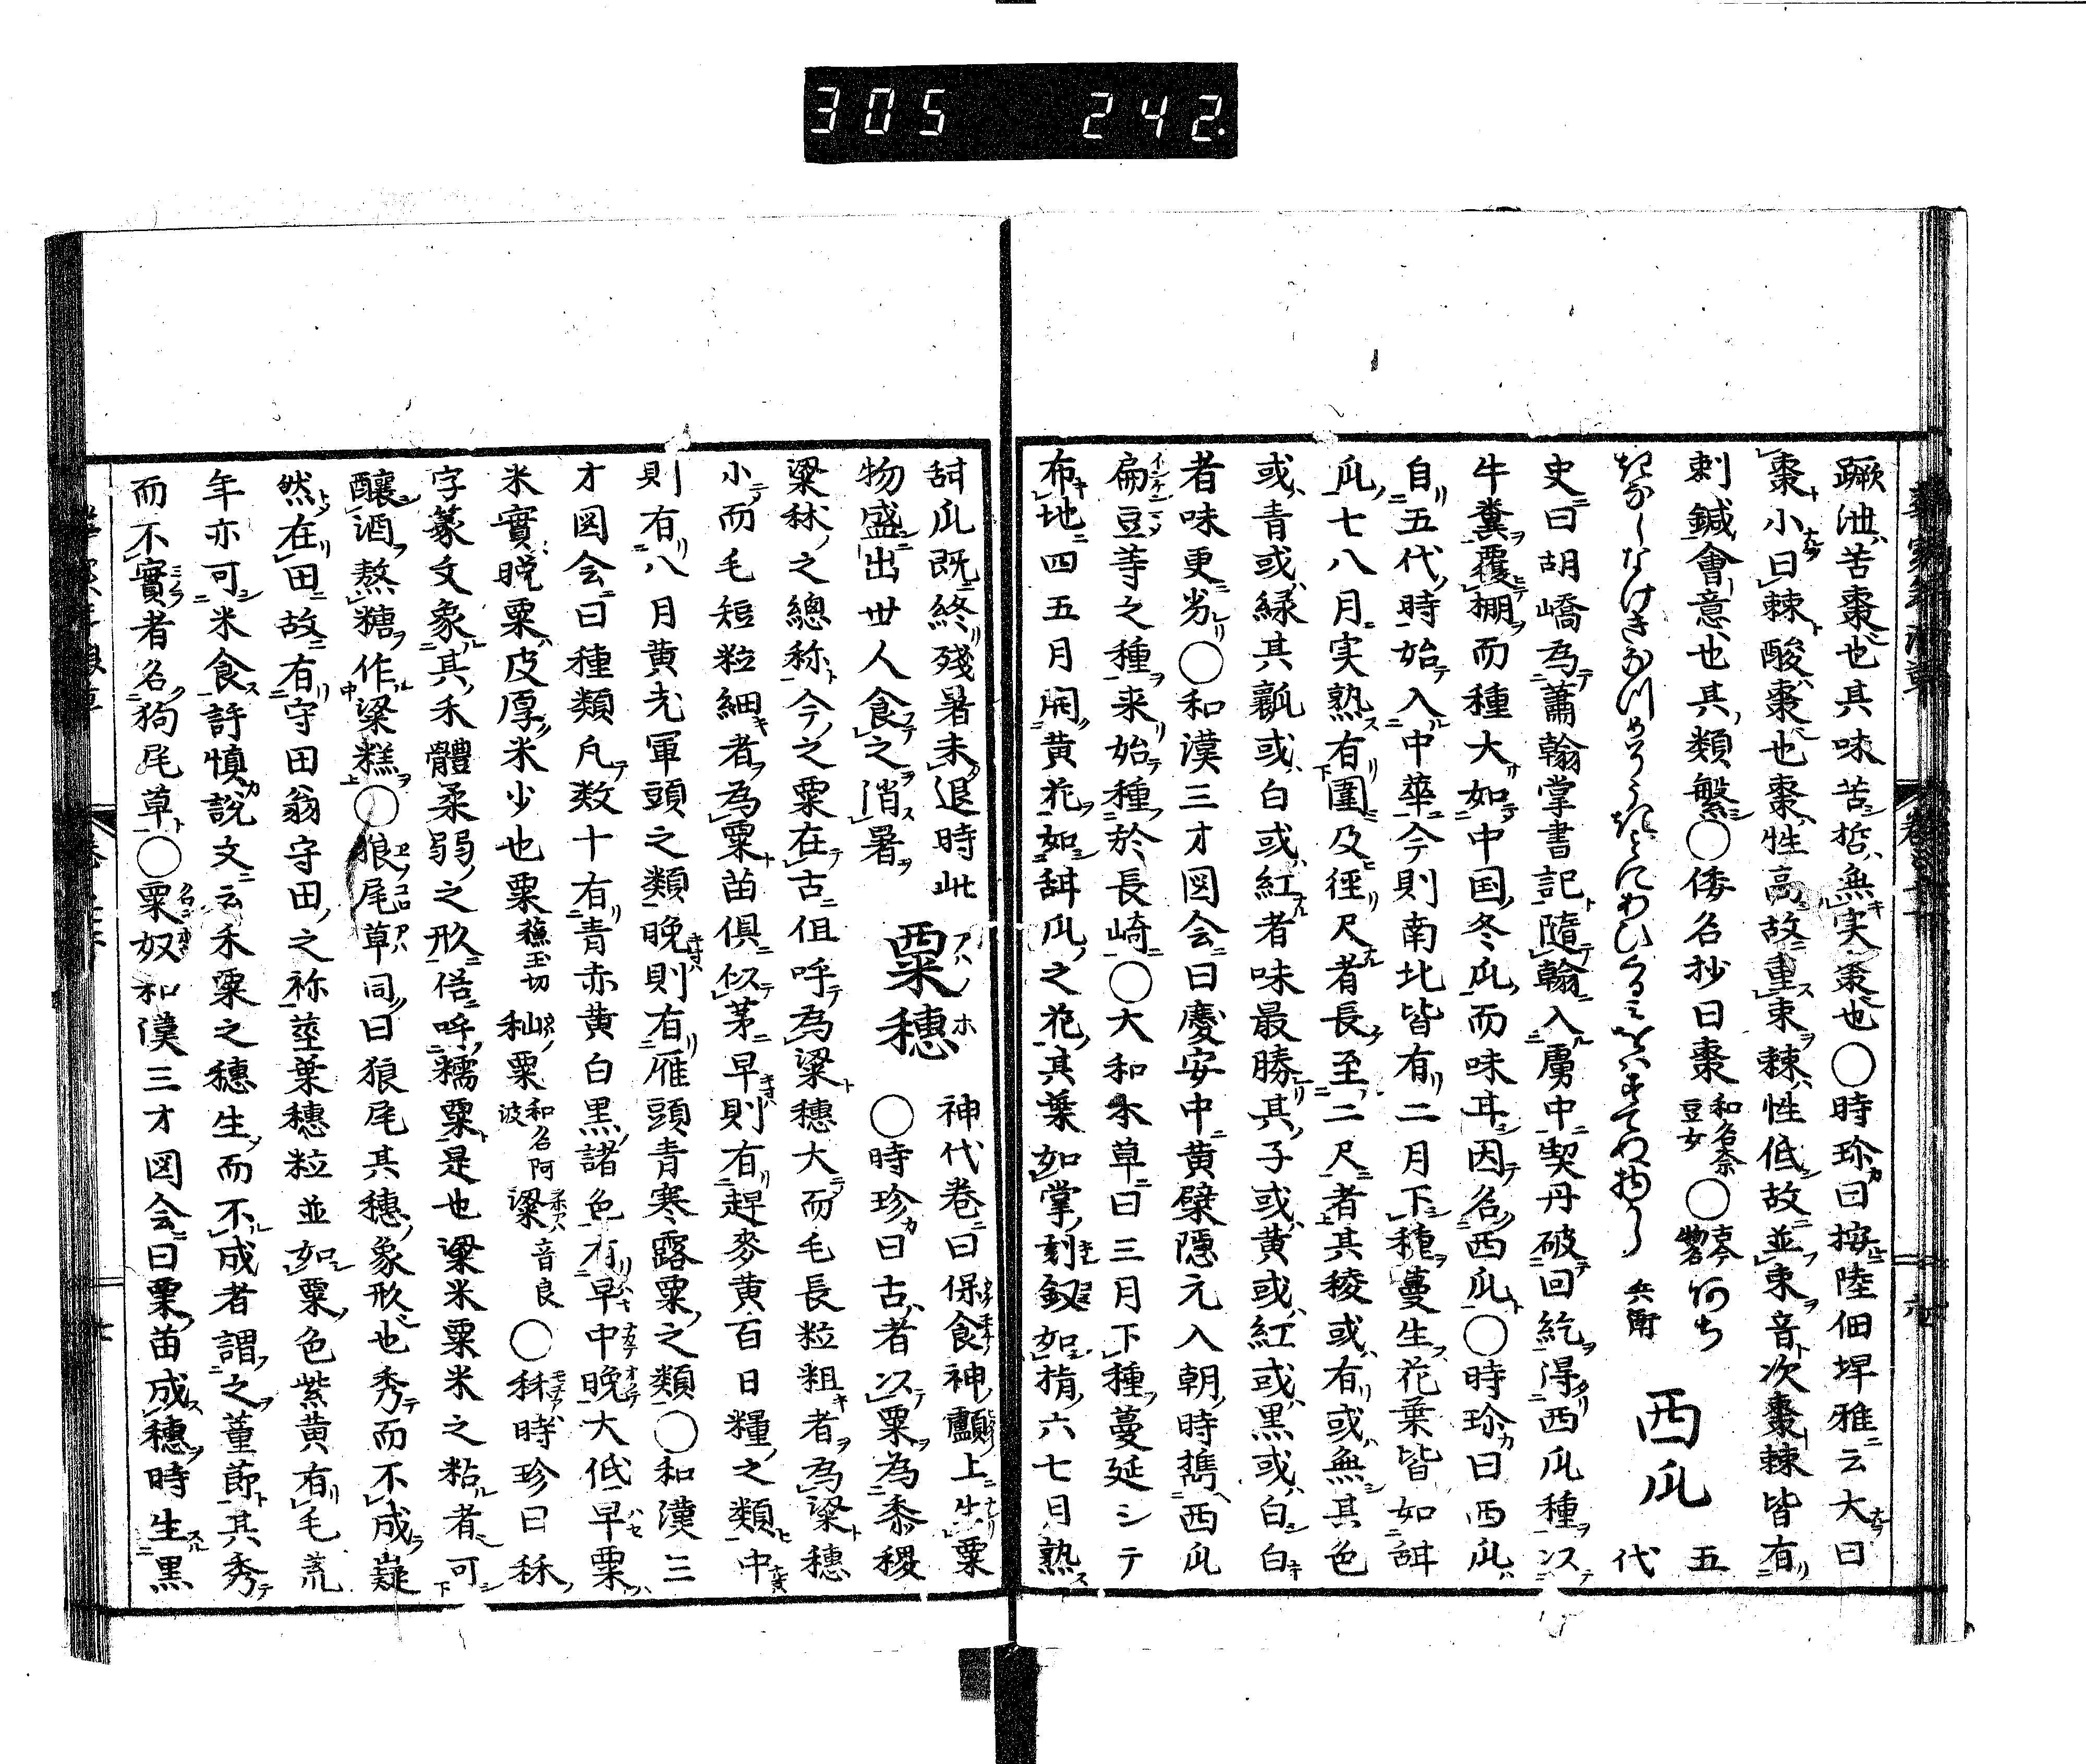 305 242.
蹶洩苦棗也其味苦晢無実棗也○時珍曰按陸佃埤雅云大曰
棗小曰棘酸棗也棗性高故重朿棘性低故並朿音次棗棘皆有
刺鍼會意也其類繁○倭名抄曰棗和名奈豆女○
西瓜 五代
史曰胡嶠為蕭翰掌書記隨翰入虜中契丹破回紇得西瓜種以
牛糞覆棚而種大如中国冬瓜而味耳因名西瓜○時珍曰西瓜
自五代時始入中華今則南北皆有二月下種蔓生花葉皆如甜
瓜七八月実熟有圍及徑尺者長至二尺者其稜或有或無其色
或青或緑其瓤或白或紅者味最勝其子或黄或紅或黒或白白
者味更劣○和漢三才図会曰慶安中黄檗隠元入朝時携西瓜
扁豆等之種来始種於長崎○大和本草曰三月下種蔓延シテ
布地四五月開黄花如甜瓜之花其葉如掌刻釵如指六七月熟
甜瓜既終殘暑未退時此
物盛出世人食之消暑
粟穂 神代巻曰保食神顱上生粟
○時珍曰古者以粟為黍稷
梁秫之總称今之粟在古但呼為梁穗大而毛長粒粗者為梁穗
小而毛短粒細者為粟苗倶似茅早則有趕麥黄百日糧之類中
則有八月黄老軍頭之類晩則有雁頭青寒露粟之類○和漢三
才図会曰種類凡数十有青赤黄白黒諸色有早中晩大低早粟
米實晩粟皮厚米少也粟蘓玉切 籼粟和名阿波 梁音良○秫時珍曰秫
字篆文象其禾體柔弱之形俗呼糯粟是也梁米粟米之粘者可
釀酒熬糖作梁糕○狼尾草同曰狼尾其穗象形也秀而不成嶷
然在田故有守田翁守田之称莖葉穗粒並如粟色紫黄有毛荒
年亦可米食許慎説文云禾粟之穗生而不成者謂之董蓈其秀
而不實者名狗尾草○粟奴和漢三才図会曰粟苗成穗時生黒